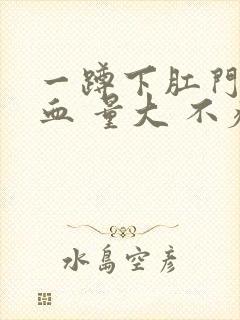 一蹲下肛門
血 量大 不
水島空彦